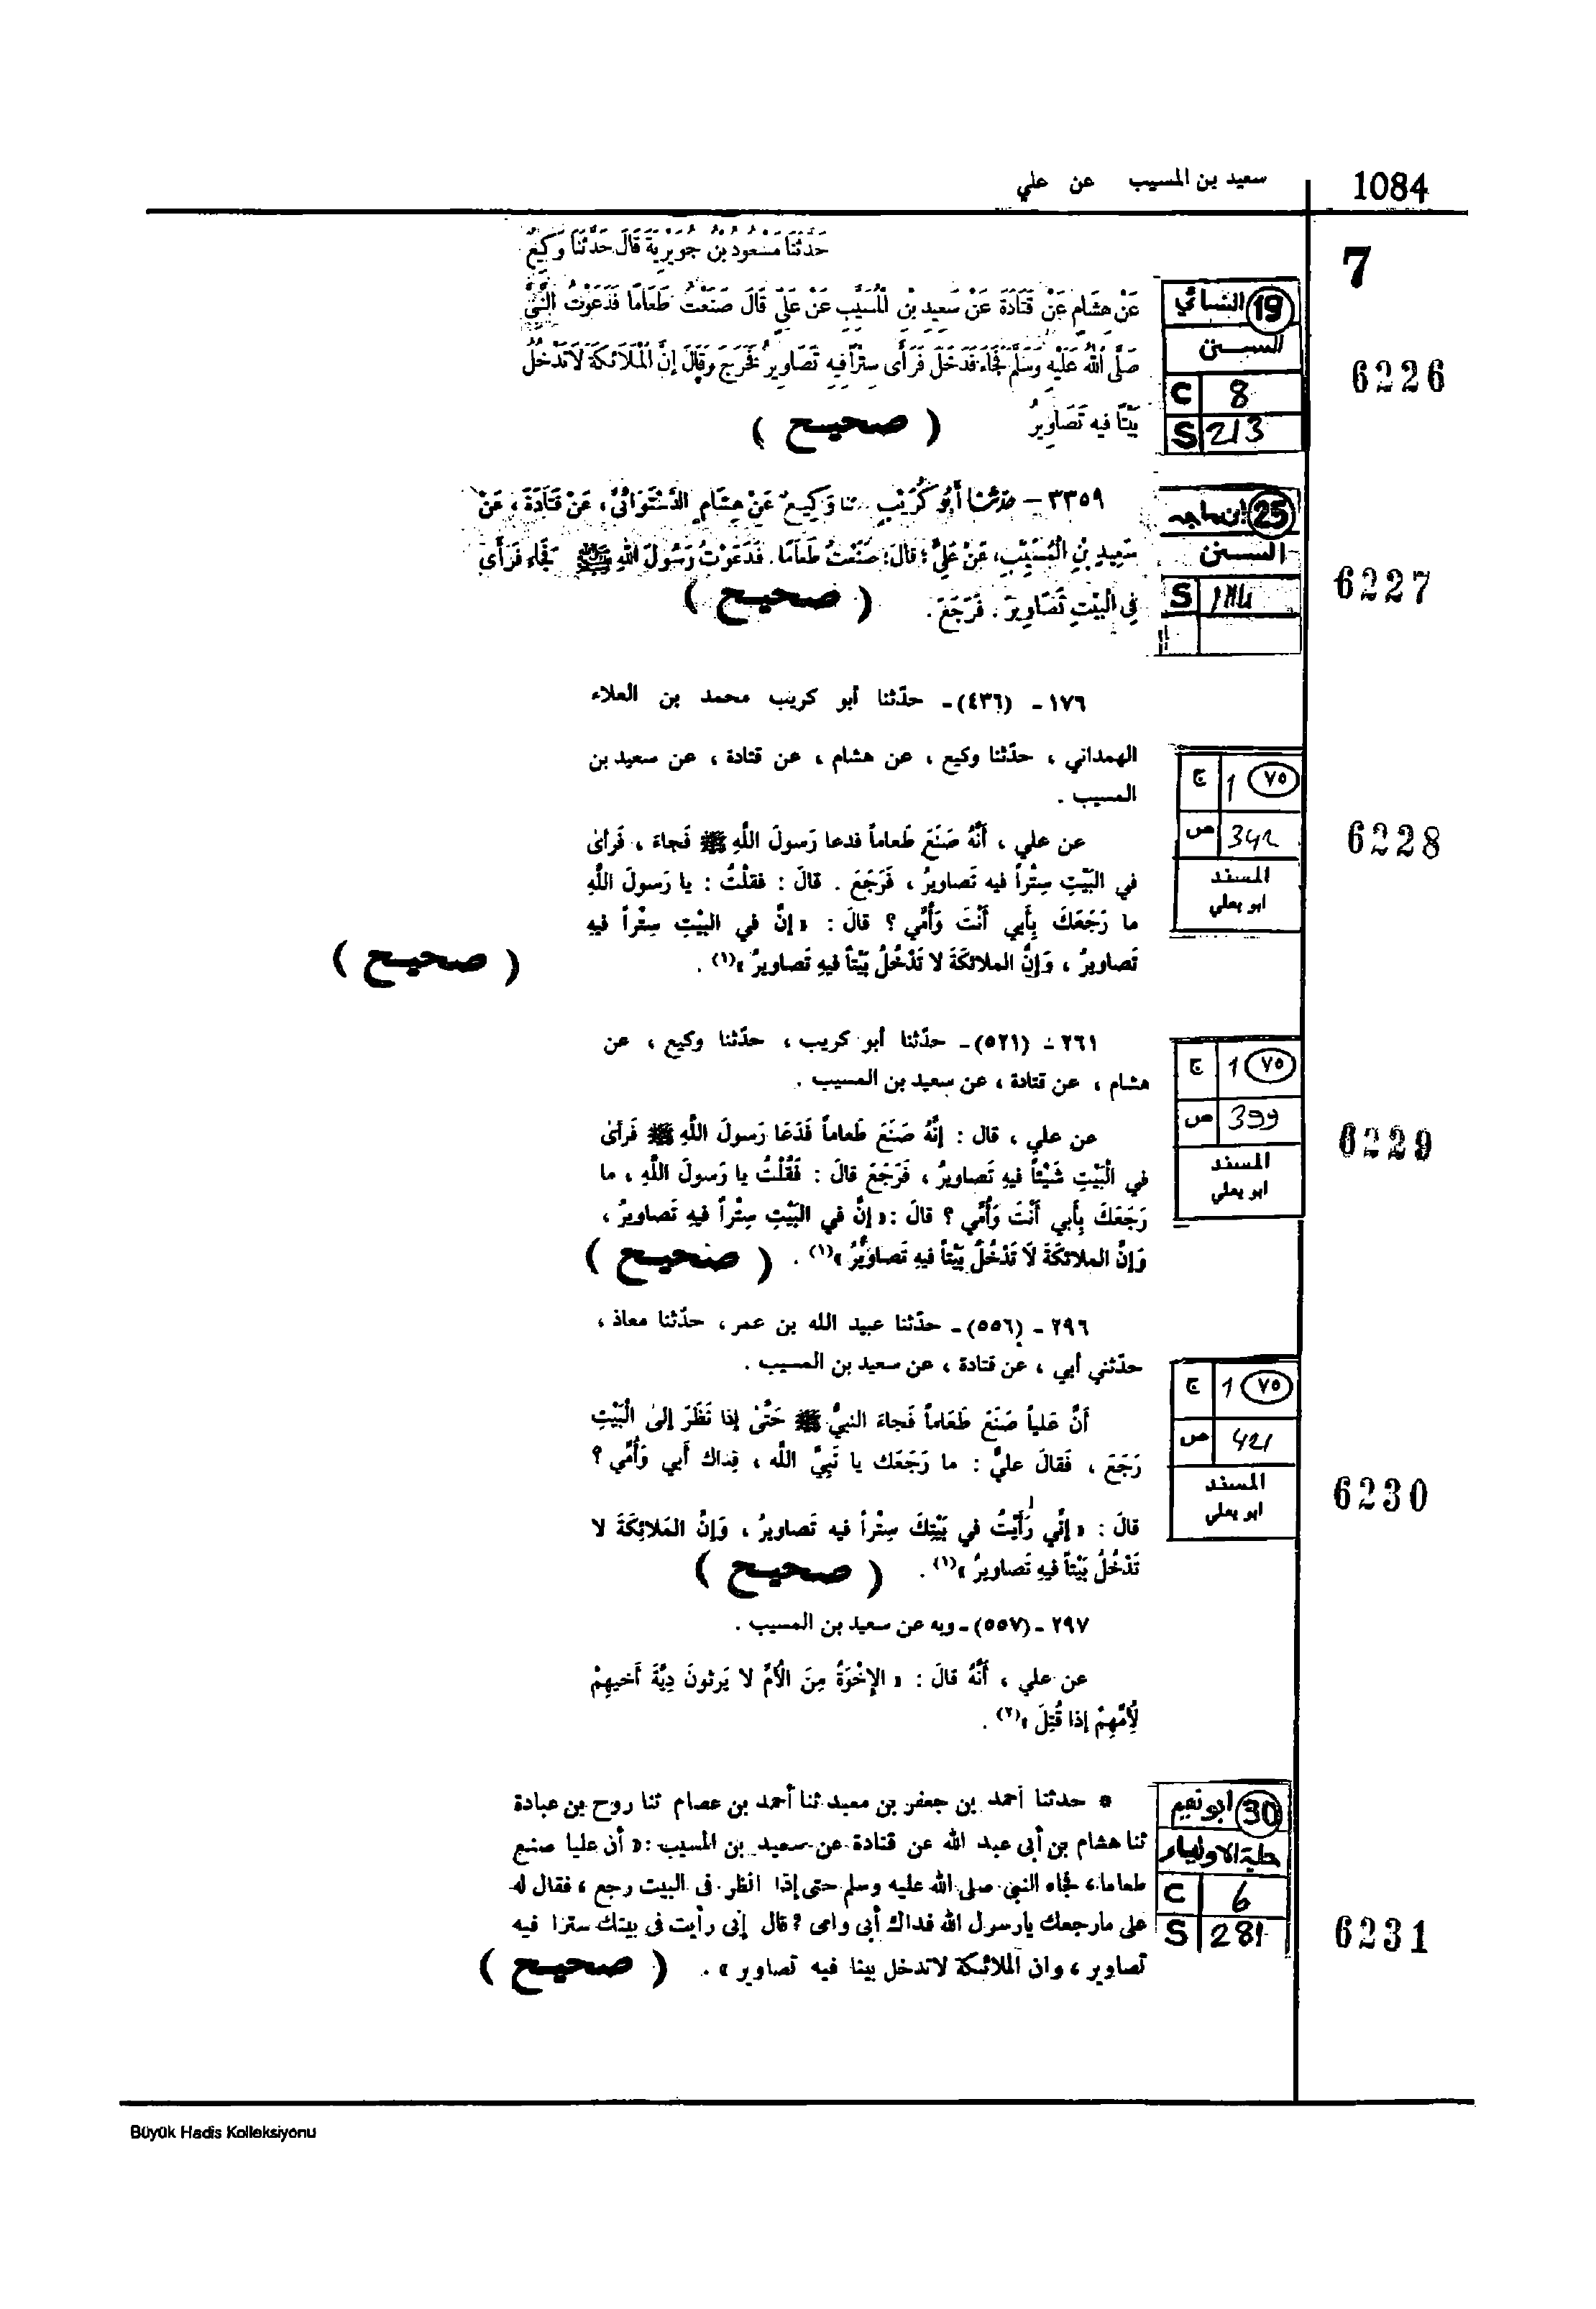 1084
سعيد بن المسيب عن علي
7
حَدَّثَنَا مَسْعُودُ بْنُ جُوَيْرِيَةَ قَالَ حَدَّثَنَا وَكِيعٌ
عَنْ هِشَامٍ عَنْ قَتَادَةَ عَنْ سَعِيدِ بْنِ الْمُسَيَّبِ عَنْ عَلِيٍّ قَالَ صَنَعْتُ طَعَامًا فَدَعَوْتُ النَّبِيَّ
صَلَّى اللهُ عَلَيْهِ وَسَلَّمَ فَجَاءَ فَدَخَلَ فَرَأَى سِتْرًا فِيهِ تَصَاوِيرُ فَخَرَجَ وَقَالَ إِنَّ الْمَلَائِكَةَ لَا تَدْخُلُ
بَيْتًا فِيهِ تَصَاوِيرُ ( صحيح )
19 النسائي
السنن
C 8
S 213
6226
٣٣٥٩ – حَدَّثَنَا أَبُو كُرَيْبٍ . ثنا وَكِيعٌ عَنْ هِشَامٍ الدَّسْتَوَائِيِّ، عَنْ قَتَادَةَ، عَنْ
سَعِيدِ بْنِ الْمُسَيِّبِ، عَنْ عَلِيٍّ؛ قَالَ: صَنَعْتُ طَعَامًا. فَدَعَوْتُ رَسُولَ اللهِ ﷺ فَجَاءَ فَرَأَى
فِي الْبَيْتِ تَصَاوِيرَ . فَرَجَعَ . ( صحيح )
25 ابن ماجه
السنن
S
6227
١٧٦ - (٤٣٦) - حدّثنا أبو كريب محمد بن العلاء
الهمداني ، حدّثنا وكيع ، عن هشام ، عن قتادة ، عن سعيد بن
المسيب .
عن علي ، أَنَّهُ صَنَعَ طَعاماً فدعا رَسولَ اللَّهِ ﷺ فَجاءَ ، فَرأىٰ
في البَيْتِ سِتْراً فيه تَصاويرُ ، فَرَجَعَ . قالَ : فقلْتُ : يا رَسولَ اللَّهِ
ما رَجَعَكَ بِأَبي أَنْتَ وَأُمِّي ؟ قالَ : « إنَّ في البيْتِ سِتْراً فيهِ
تَصاويرُ ، وَإنَّ الملائكَةَ لا تَدْخُلُ بَيْتاً فيهِ تَصاويرُ »(١) . ( صحيح )
٧٥ 1 ج
342 ص
المسند
ابو يعلي
6228
٢٦١ - (٥٢١) - حدّثنا أبو كريب ، حدّثنا وكيع ، عن
هشام ، عن قتادة ، عن سعيد بن المسيب .
عن علي ، قال : إنَّهُ صَنَعَ طَعاماً فَدَعَا رَسولَ اللَّهِ ﷺ فَرَأىٰ
في الْبَيْتِ شَيْئاً فيهِ تَصاويرُ ، فَرَجَعَ قالَ : فَقُلْتُ يا رَسولَ اللَّهِ ، ما
رَجَعَكَ بِأَبي أَنْتَ وَأُمِّي ؟ قالَ : « إنَّ في البَيْتِ سِتْراً فيهِ تَصاويرُ ،
وَإنَّ الملائكَةَ لَا تَدْخُلُ بَيْتاً فيهِ تَصاويرُ »(١) . ( صحيح )
٧٥ 1 ج
399 ص
المسند
ابو يعلي
6229
٢٩٦ - (٥٥٦) - حدّثنا عبيد الله بن عمر ، حدّثنا معاذ ،
حدّثني أبي ، عن قتادة ، عن سعيد بن المسيب .
أَنَّ عَلياً صَنَعَ طَعَاماً فَجاءَ النبيُّ ﷺ حَتَّىٰ إذا نَظَرَ إلىٰ الْبَيْتِ
رَجَعَ ، فَقالَ عليٌّ : ما رَجَعَك يا نَبِيَّ اللَّه ، فِداك أَبي وَأُمِّي ؟
قالَ : « إنِّي رَأَيْتُ في بَيْتِكَ سِتْراً فيه تَصاويرُ ، وَإنَّ المَلائِكَةَ لا
تَدْخُلُ بَيْتاً فيهِ تَصاويرُ »(١) . ( صحيح )
٧٥ 1 ج
421 ص
المسند
ابو يعلي
6230
٢٩٧ - (٥٥٧) - وبه عن سعيد بن المسيب .
عن علي ، أَنَّهُ قالَ : « الإخْوَةُ مِنَ الأُمِّ لا يَرثونَ دِيَّةَ أَخيهِمْ
لأُمِّهِمْ إذا قُتِلَ »(٢) .
* حدثنا أحمد بن جعفر بن معبد ثنا أحمد بن عصام ثنا روح بن عبادة
ثنا هشام بن أبى عبد الله عن قتادة عن سعيد بن المسيب : « أن عليا صنع
طعاما ، فجاء النبى صلى الله عليه وسلم حتى إذا انظر فى البيت رجع ، فقال له
على مارجعك يارسول الله فداك أبى وامى ؟ قال إنى رأيت فى بيتك سترا فيه
تصاوير ، وان الملائكة لاتدخل بيتا فيه تصاوير » . ( صحيح )
30 ابو نعيم
حلية الاولياء
C 6
S 281
6231
Büyük Hadis Kolleksiyonu